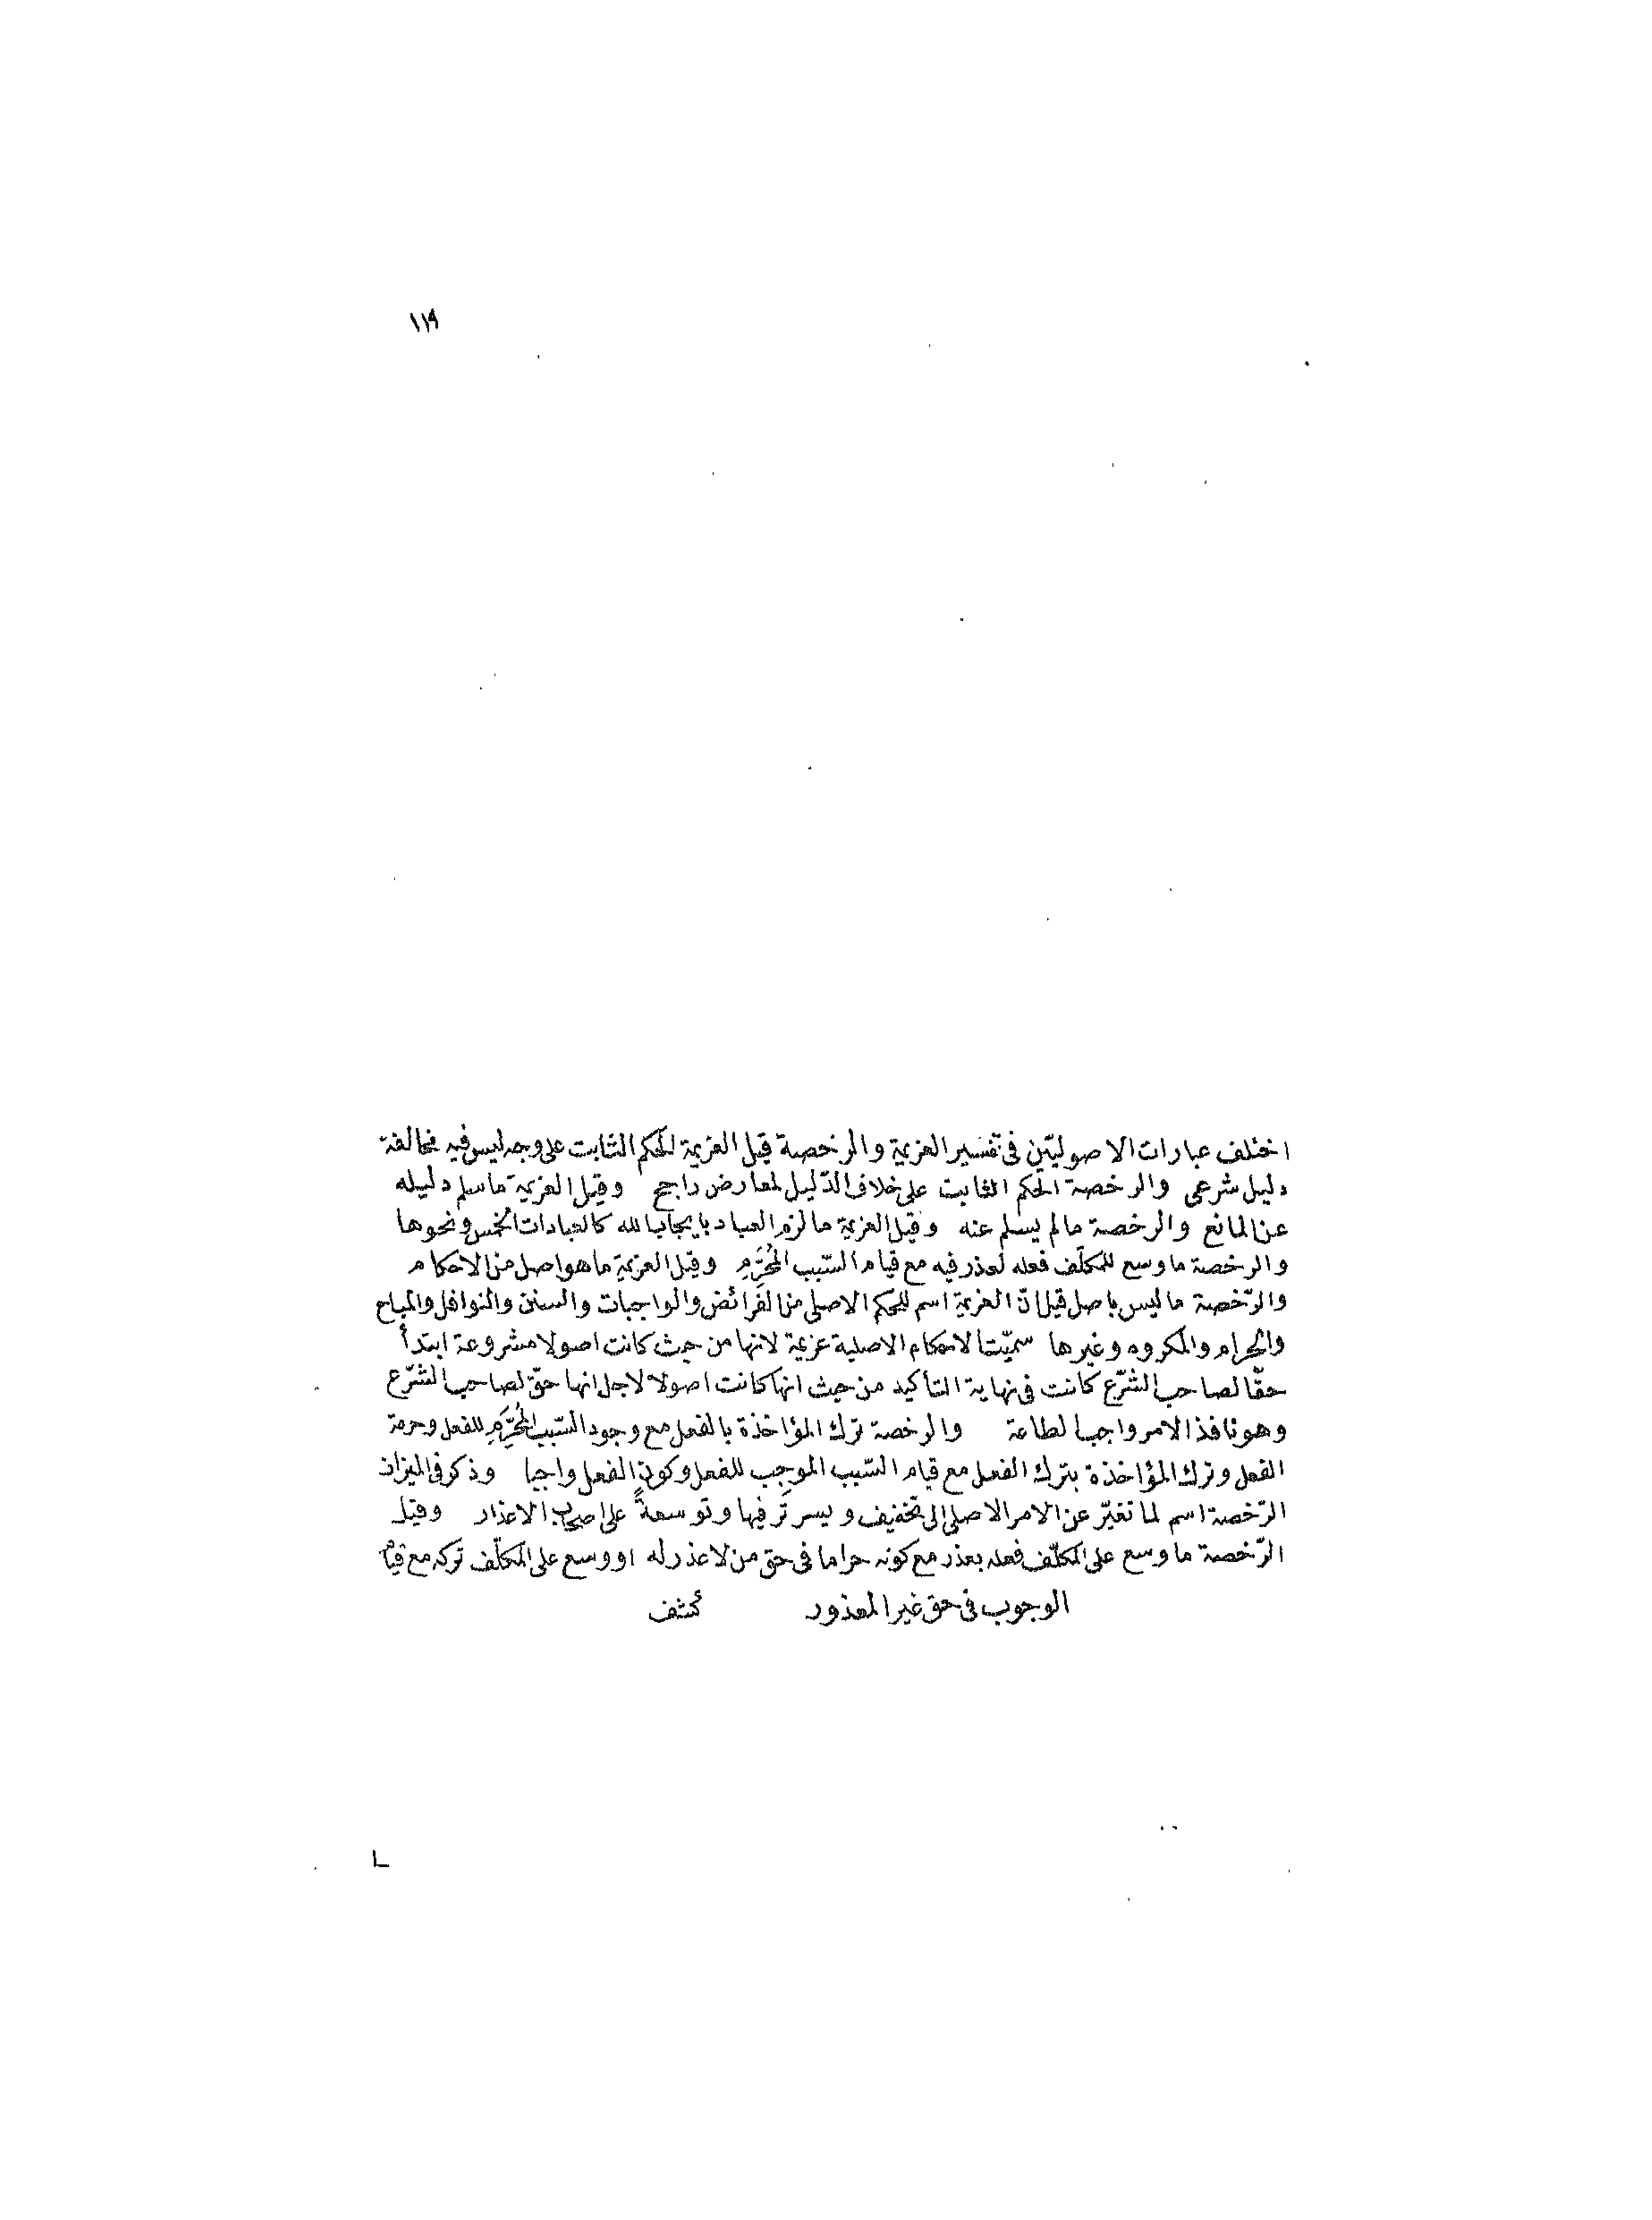 ١١٩
اختلف عبارات الاصوليّين فى تفسير العزيمة والرخصة قيل العزيمة الحكم الثابت على وجه ليس فيه مخالفة
دليل شرعى والرخصة الحكم الثابت على خلاف الدّليل لمعارض راجح وقيل العزيمة ما سلم دليله
عن المانع والرخصة ما لم يسلم عنه وقيل العزيمة ما لزم العباد بايجاب الله كالعبادات الخمس ونحوها
والرخصة ما وسع للمكلّف فعله لعذر فيه مع قيام السّبب المُحَرِّمِ وقيل العزيمة ما هو اصل من الاحكام
والرّخصة ما ليس باصل قيل انّ العزيمة اسم للحكم الاصلى من الفرائض والواجبات والسنن والنوافل والمباح
والحرام والمكروه وغيرها سميّت الاحكام الاصلية عزيمة لانها من حيث كانت اصولا مشروعة ابتدأ
حقّا لصاحب الشّرع كانت فى نهاية التأكيد من حيث انها كانت اصولا لاجل انها حقّ لصاحب الشّرع
وهو نافذ الامر واجب الطاعة والرخصة ترك المؤاخذة بالفعل مع وجود السّبب المُحَرِّمِ للفعل وحرمة
الفعل وترك المؤاخذة بترك الفعل مع قيام السّبب الموجب للفعل وكون الفعل واجبا وذكر فى الميزان
الرّخصة اسم لما تغيّر عن الامر الاصلى الى تخفيف ويسر تَرفيها وتوسعةً على اصحاب الاعذار وقيل
الرّخصة ما وسع على المكلّف فعله بعذر مع كونه حراما فى حق من لا عذر له او وسع على المكلّف تركه مع قيام
الوجوب فى حق غير المعذور كشف